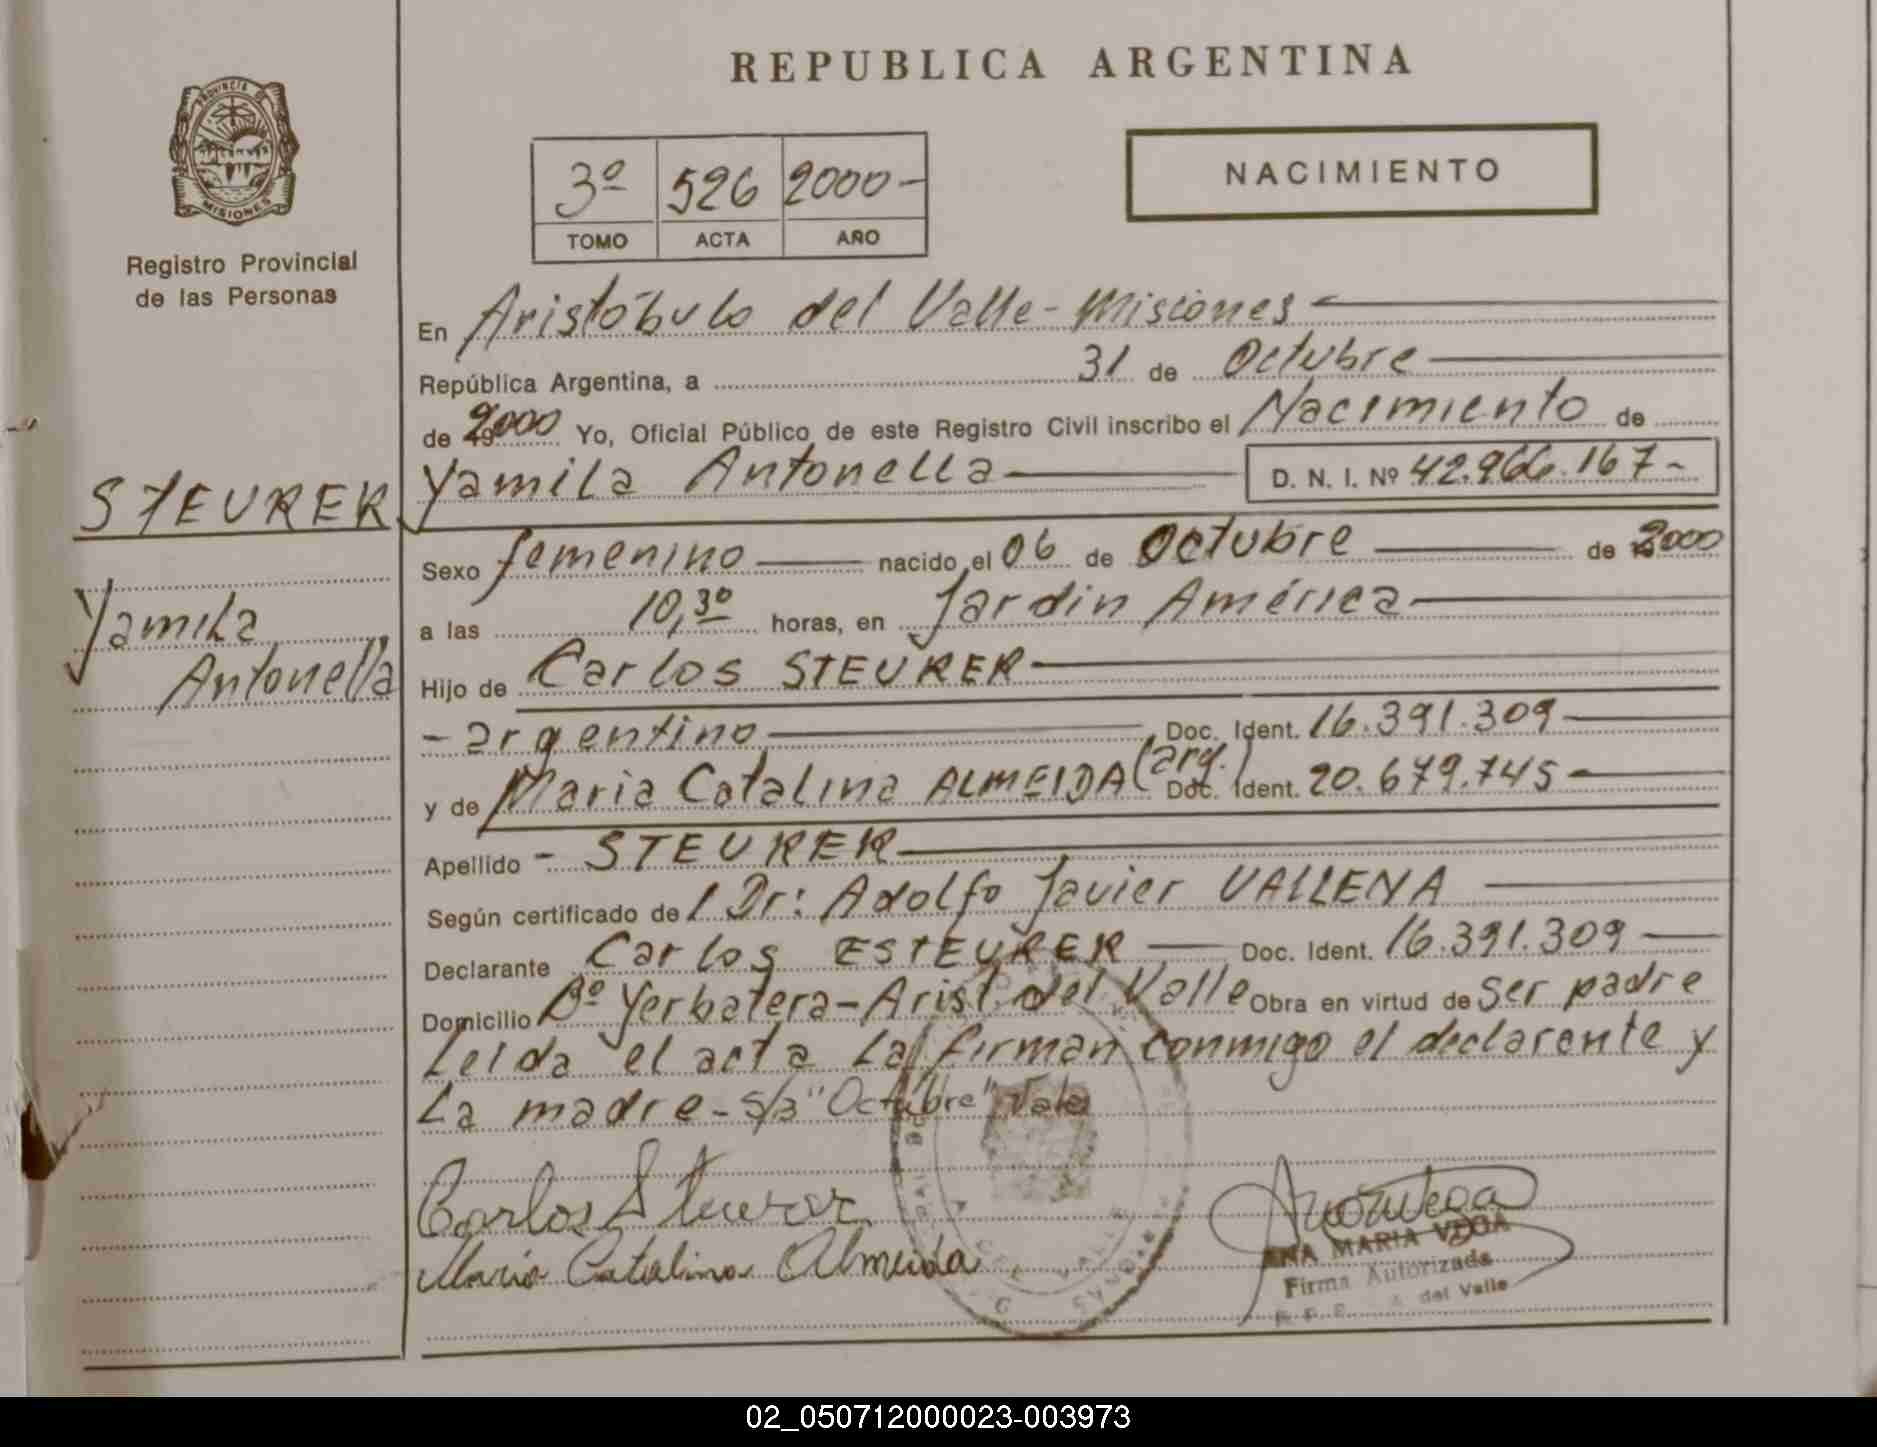 REPUBLICA ARGENTINA
PROVINCIA DE
MISIONES
Registro Provincial
de las Personas
3º 526 2000-
TOMO ACTA AÑO
NACIMIENTO
En Aristóbulo del Valle-Misiones
República Argentina, a 31 de Octubre
de 2000 Yo, Oficial Público de este Registro Civil inscribo el Nacimiento de
STEURER
Yamila Antonella D. N. I. Nº 42.966.167-
Sexo femenino nacido el 06 de Octubre de 2000
Yamila
Antonella
a las 10,30 horas, en Jardin América
Hijo de Carlos STEURER
- argentino Doc. Ident. 16.391.309
y de Maria Catalina ALMEIDA (arg.) Doc. Ident. 20.679.745
Apellido - STEURER
Según certificado de Dr: Adolfo Javier VALLENA
Declarante Carlos ESTEURER Doc. Ident. 16.391.309
Domicilio Bº Yerbatera-Arist. del Valle Obra en virtud de Ser padre
Leida el acta la firman conmigo el declarante y
La madre-s/a "Octubre" Vale
Carlos Steurer
Maria Catalina Almeida
DEL VALLE
ANA MARIA VEGA
Firma Autorizada
del Valle
02_050712000023-003973